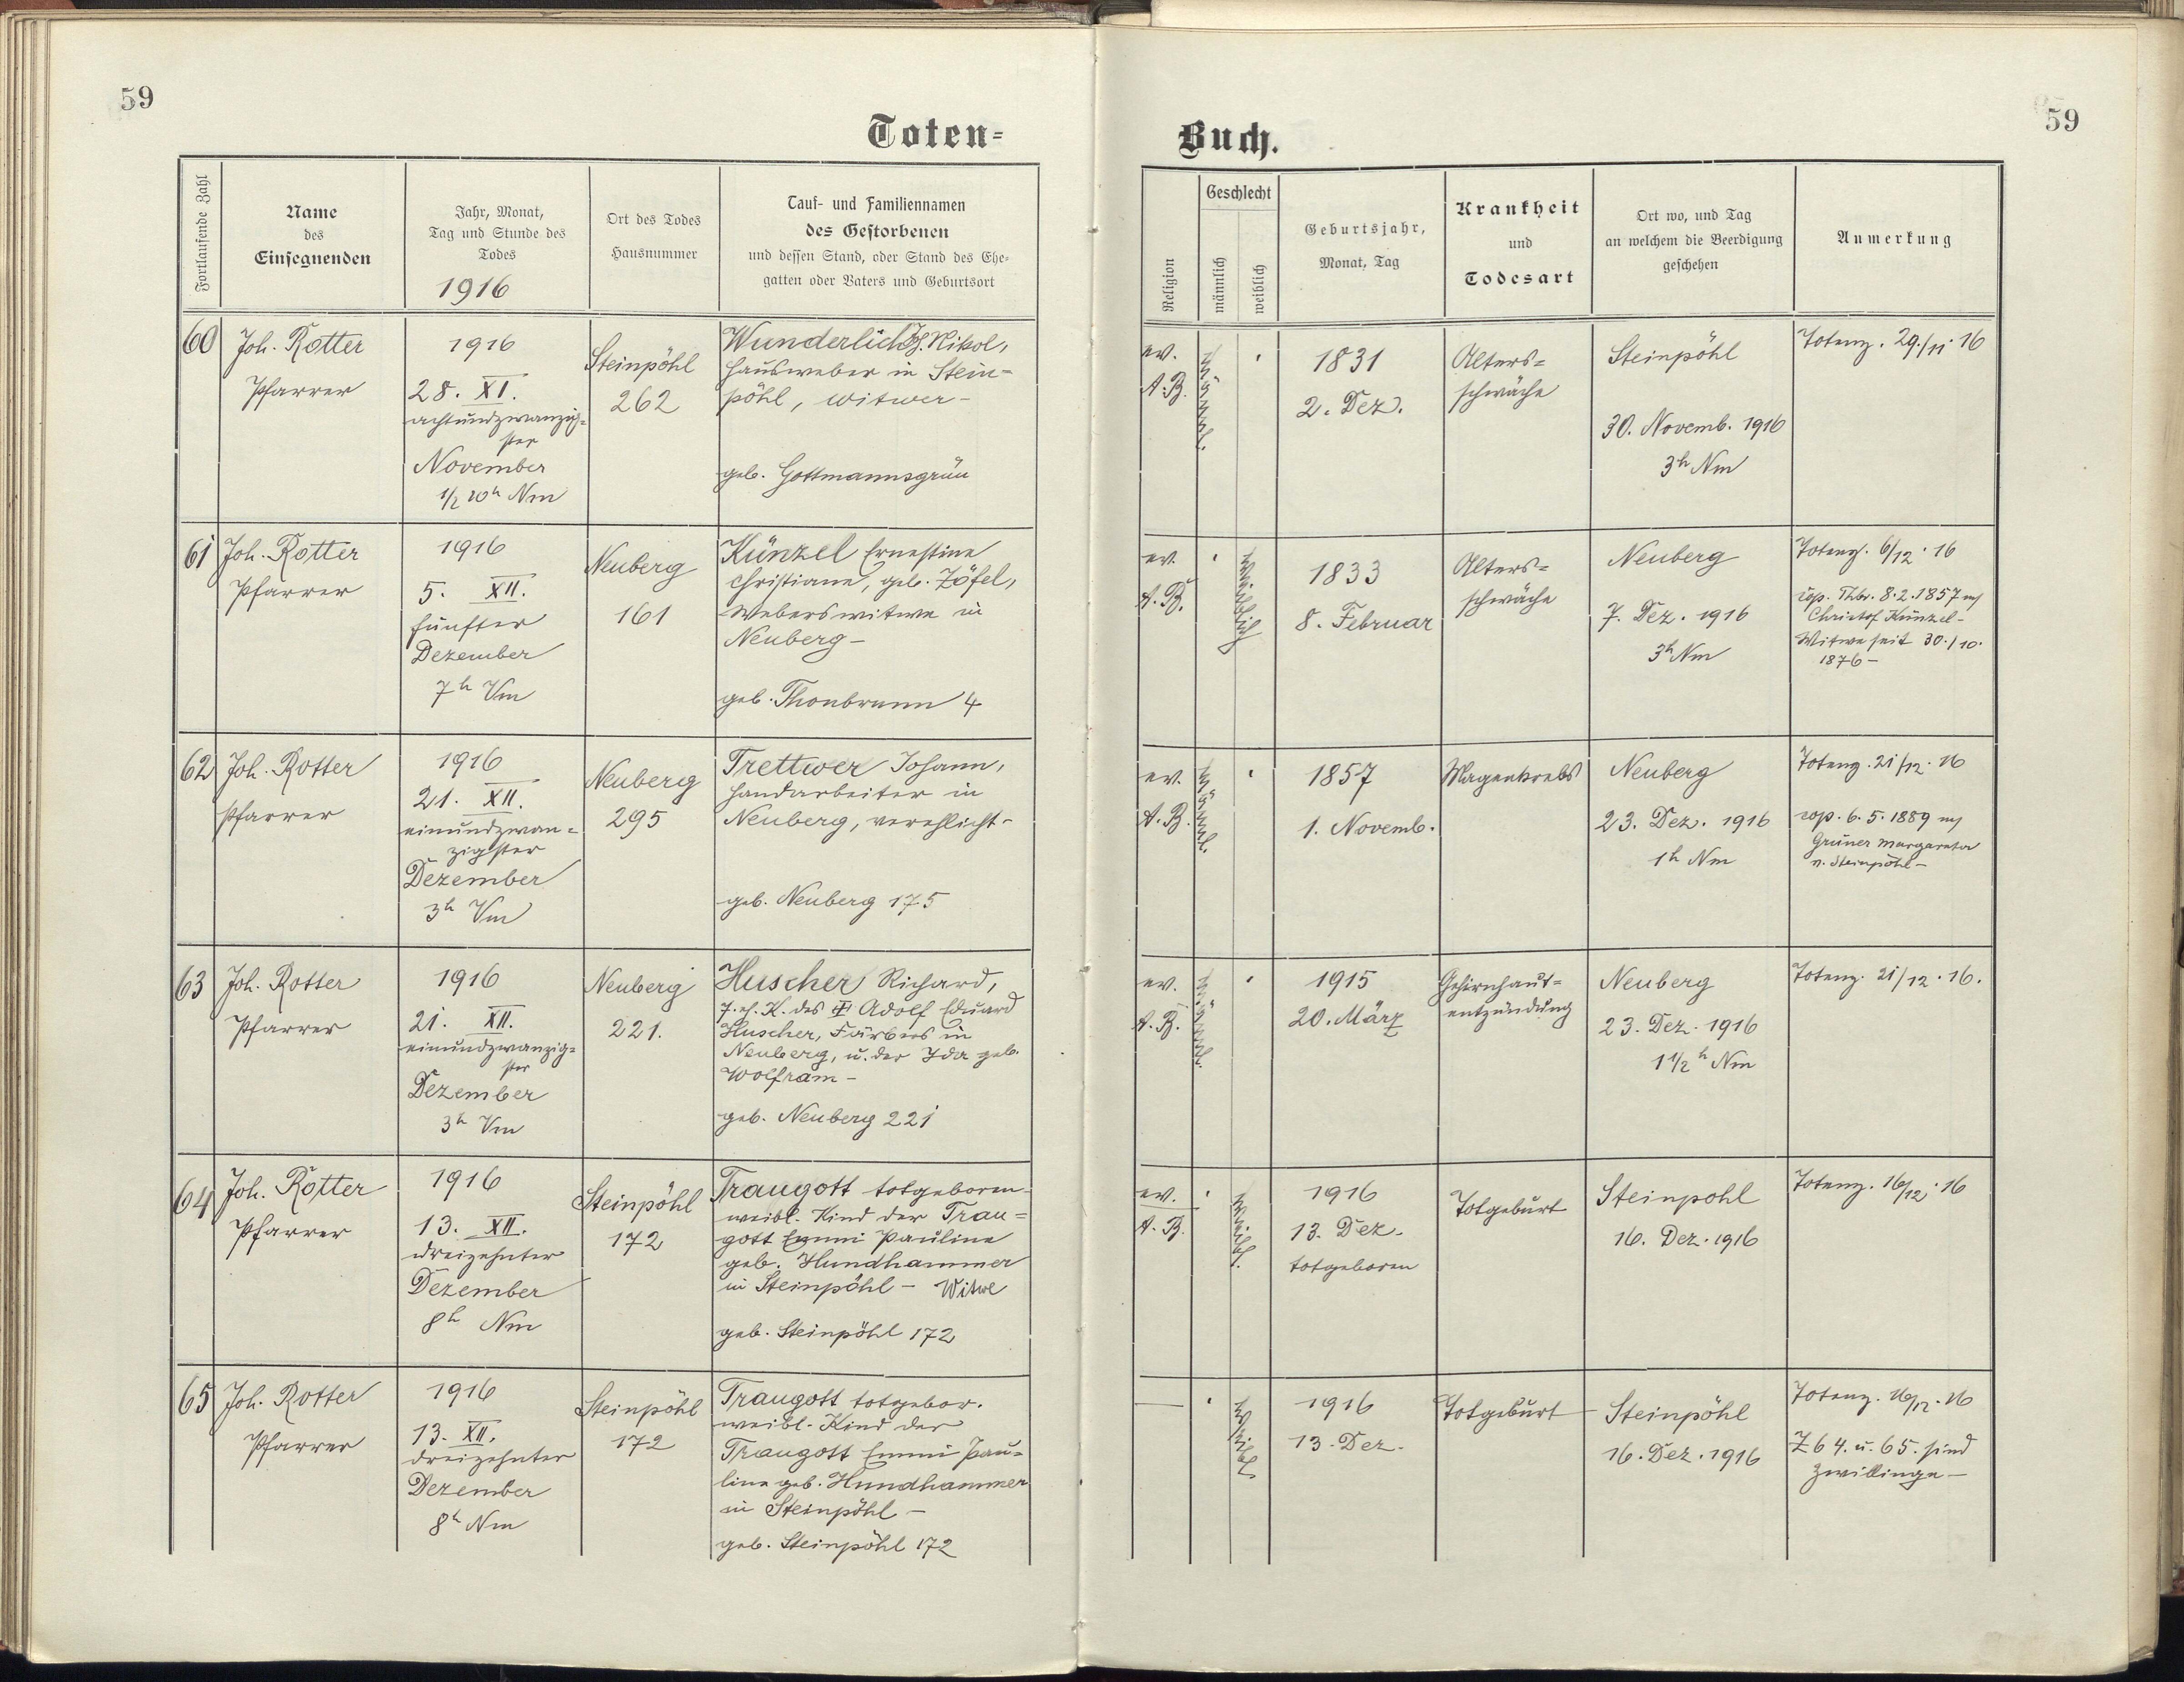 59
Toten-
Fortlaufende Zahl
Name
des
Einsegnenden
Jahr, Monat,
Tag und Stunde des
Todes
1916
Ort des Todes
Hausnummer
Tauf- und Familiennamen
des Gestorbenen
und dessen Stand, oder Stand des Ehe-
gatten oder Vaters und Geburtsort
60
Joh. Rotter
Pfarrer
1916
28. XI.
achtundzwanzig-
ster
November
1/2 10h Nm
Steinpöhl
262
Wunderlich Nikol,
Hausweber in Stein-
pöhl, Witwer-
geb. Gottmannsgrün
61
Joh. Rotter
Pfarrer
1916
5. XII.
fünfter
Dezember
7h Vm
Neuberg
161
Künzel Ernestine
Christiane, geb. Zöfel,
Weberswitwe in
Neuberg-
geb. Thonbrunn 4
62
Joh. Rotter
Pfarrer
1916
21. XII.
einundzwan-
zigster
Dezember
3h Vm
Neuberg
295
Trettwer Johann,
Handarbeiter in
Neuberg, verehlicht-
geb. Neuberg 175
63
Joh. Rotter
Pfarrer
1916
21. XII.
einundzwanzig-
ster
Dezember
3h Vm
Neuberg
221.
Huscher Richard,
7. eh. K. des Adolf Eduard
Huscher, Färbers in
Neuberg, u. der Ida geb.
Wolfram-
geb. Neuberg 221
64
Joh. Rotter
Pfarrer
1916
13. XII.
dreizehnter
Dezember
8h Nm
Steinpöhl
172
Traugott totgeboren
weibl. Kind der Trau-
gott Emmi Pauline
geb. Hundhammer
in Steinpöhl- Witwe
geb. Steinpöhl 172
65
Joh. Rotter
Pfarrer
1916
13. XII.
dreizehnter
Dezember
8h Nm
Steinpöhl
172
Traugott totgebor.
weibl. Kind der
Traugott Emmi Pau-
line geb. Hundhammer
in Steinpöhl-
geb. Steinpöhl 172
59
Buch.
Religion
Geschlecht
männlich
weiblich
Geburtsjahr,
Monat, Tag
Krankheit
und
Todesart
Ort wo, und Tag
an welchem die Beerdigung
geschehen
Anmerkung
ev.
A.B.
männl.
1831
2. Dez.
Alters-
schwäche
Steinpöhl
30. Novemb. 1916
3h Nm
Totenz. 29./11. 16
ev.
A.B.
weiblich
1833
8. Februar
Alters-
schwäche
Neuberg
7. Dez. 1916
3h Nm
Totenz. 6/12. 16
cop. Thbr. 8.2.1857 m/
Christof Künzel-
Witwe seit 30./10.
1876-
ev.
A.B.
männl.
1857
1. Novemb.
Magenkrebs
Neuberg
23. Dez. 1916
1h Nm
Totenz. 21/12. 16
cop. 6.5.1889 m/
Grüner Margareta
v. Steinpöhl-
ev.
A.B.
männl.
1915
20. März
Gehirnhaut-
entzündung
Neuberg
23. Dez. 1916
1 1/2h Nm
Totenz. 21/12. 16.
ev.
A.B.
weibl.
1916
13. Dez.
totgeboren
Totgeburt
Steinpöhl
16. Dez. 1916
Totenz. 16/12. 16
weibl.
1916
13. Dez.
Totgeburt
Steinpöhl
16. Dez. 1916
Totenz. 16/12. 16
Z 64. u. 65. sind
Zwillinge-